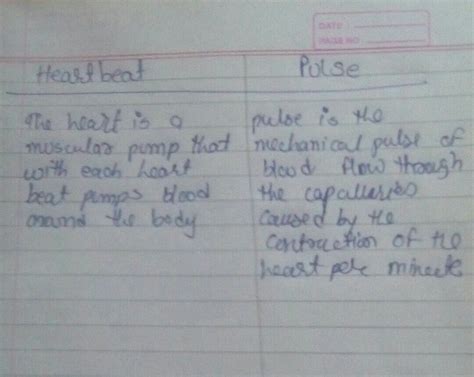 DATE :
PAGE NO :
Heartbeat
Pulse
The heart is a
muscular pump that
with each heart
beat pumps blood
around the body
pulse is the
mechanical pulse of
blood flow through
the capallaries
caused by the
contraction of the
heart per minute